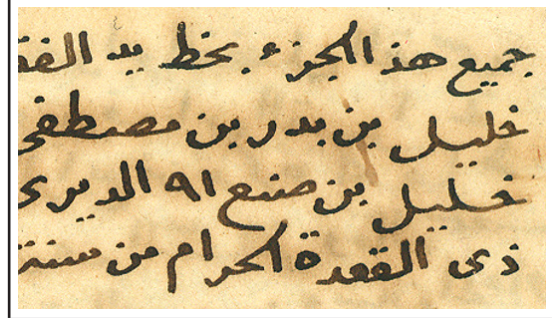 جميع هذا الجزء بخط يد الفق
خليل بن بدر بن مصطفى
خليل بن صنع الله الديرى
ذى القعدة الحرام من سنة